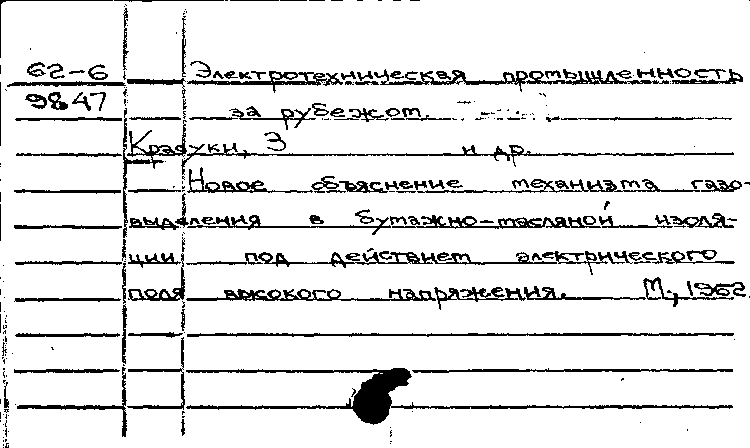 62-6 Электротехническая промышленность
9847 за рубежом.
Красуки, З и др.
Новое объяснение механизма газо-
выделения в бумажно-масляной изоля-
ции под действием электрического
поля высокого напряжения. М., 1962